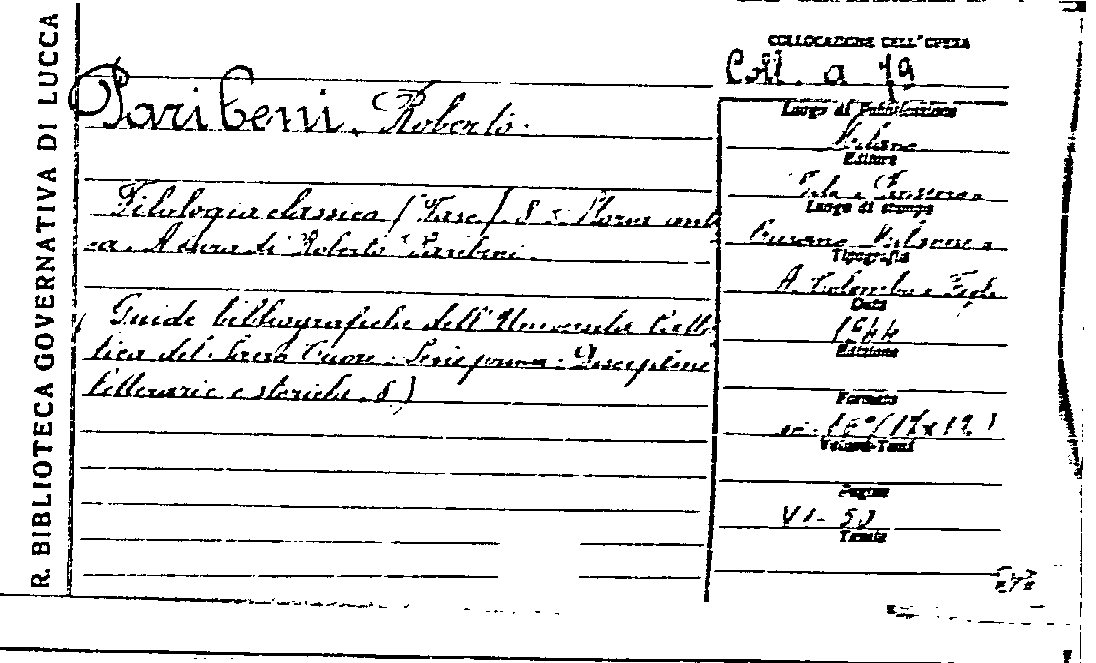 R. BIBLIOTECA GOVERNATIVA DI LUCCA
COLLOCAZIONE DELL'OPERA
Coll. a 79
Paribeni, Roberto.
Filologia classica (Fasc.) 8 : Roma anti
ca. A cura di Roberto Paribeni.
Guide bibliografiche dell'Università Catto
lica del Sacro Cuore. Serie prima. Discipline
letterarie e storiche. 8)
Luogo di Pubblicazione
Milano
Editore
Vita e Pensiero
Luogo di stampa
Milanese
Tipografia
A. Colombo e Figli
Data
1944
Edizione
Formato
16° (17x12)
Volumi-Tomi
Pagine
VI-
Tavole